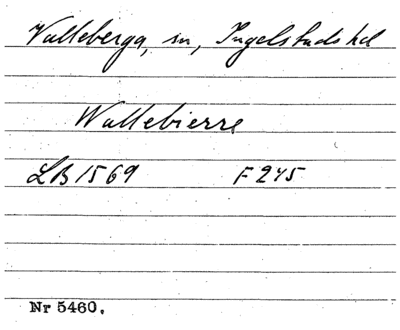 Valleberga, sn, Ingelstads hd
Wallebierre
LB 1569 F 245
Nr 5460.